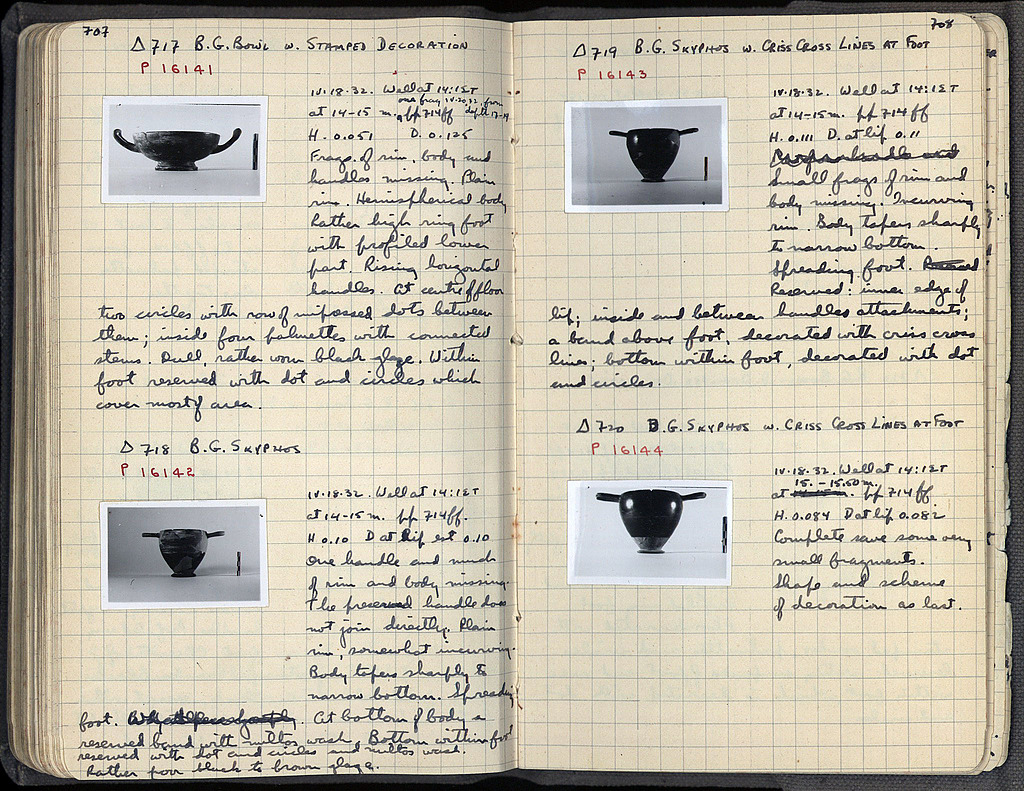 707
Δ 717 B.G. BOWL W. STAMPED DECORATION
P 16141
IV.18.32. Well at 14:ΙΣΤ
one frag. IV.20.32. from
at 14-15 m. pp 714 ff depth 17-19
H. 0.051 D. 0.125
Frags. of rim, body and
handles missing. Plain
rim. Hemispherical body
Rather high ring foot
with profiled lower
part. Rising horizontal
handles. At centre of floor
two circles with row of impossed dots between
them; inside four palmettes with connected
stems. Dull, rather worn black glaze. Within
foot reserved with dot and circles which
cover most of area.
Δ 718 B.G. SKYPHOS
P 16142
IV.18.32. Well at 14:ΙΣΤ
at 14-15 m. pp. 714 ff.
H 0.10 D at lip est 0.10
One handle and much
of rim and body missing.
The preserved handle does
not join directly. Plain
rim, somewhat incurving.
Body tapers sharply to
narrow bottom. Spreading
foot. At bottom of body a
reserved band with miltos wash. Bottom within foot
reserved with dot and circles and miltos wash.
Rather poor black to brown glaze.
708
Δ 719 B.G. SKYPHOS W. CRISS CROSS LINES AT FOOT
P 16143
IV.18.32. Well at 14:ΙΣΤ
at 14-15 m. pp 714 ff
H. 0.111 D. at lip 0.11
Small frags of rim and
body missing. Incurving
rim. Body tapers sharply
to narrow bottom.
Spreading foot.
Reserved: inner edge of
lip; inside and between handles attachments;
a band above foot, decorated with criss cross
lines; bottom within foot, decorated with dot
and circles.
Δ 720 B.G. SKYPHOS W. CRISS CROSS LINES AT FOOT
P 16144
IV.18.32. Well at 14:ΙΣΤ
15. - 15.50 m.
at 14-15 m. pp 714 ff
H. 0.084 D at lip 0.082
Complete save some very
small fragments.
Shape and scheme
of decoration as last.